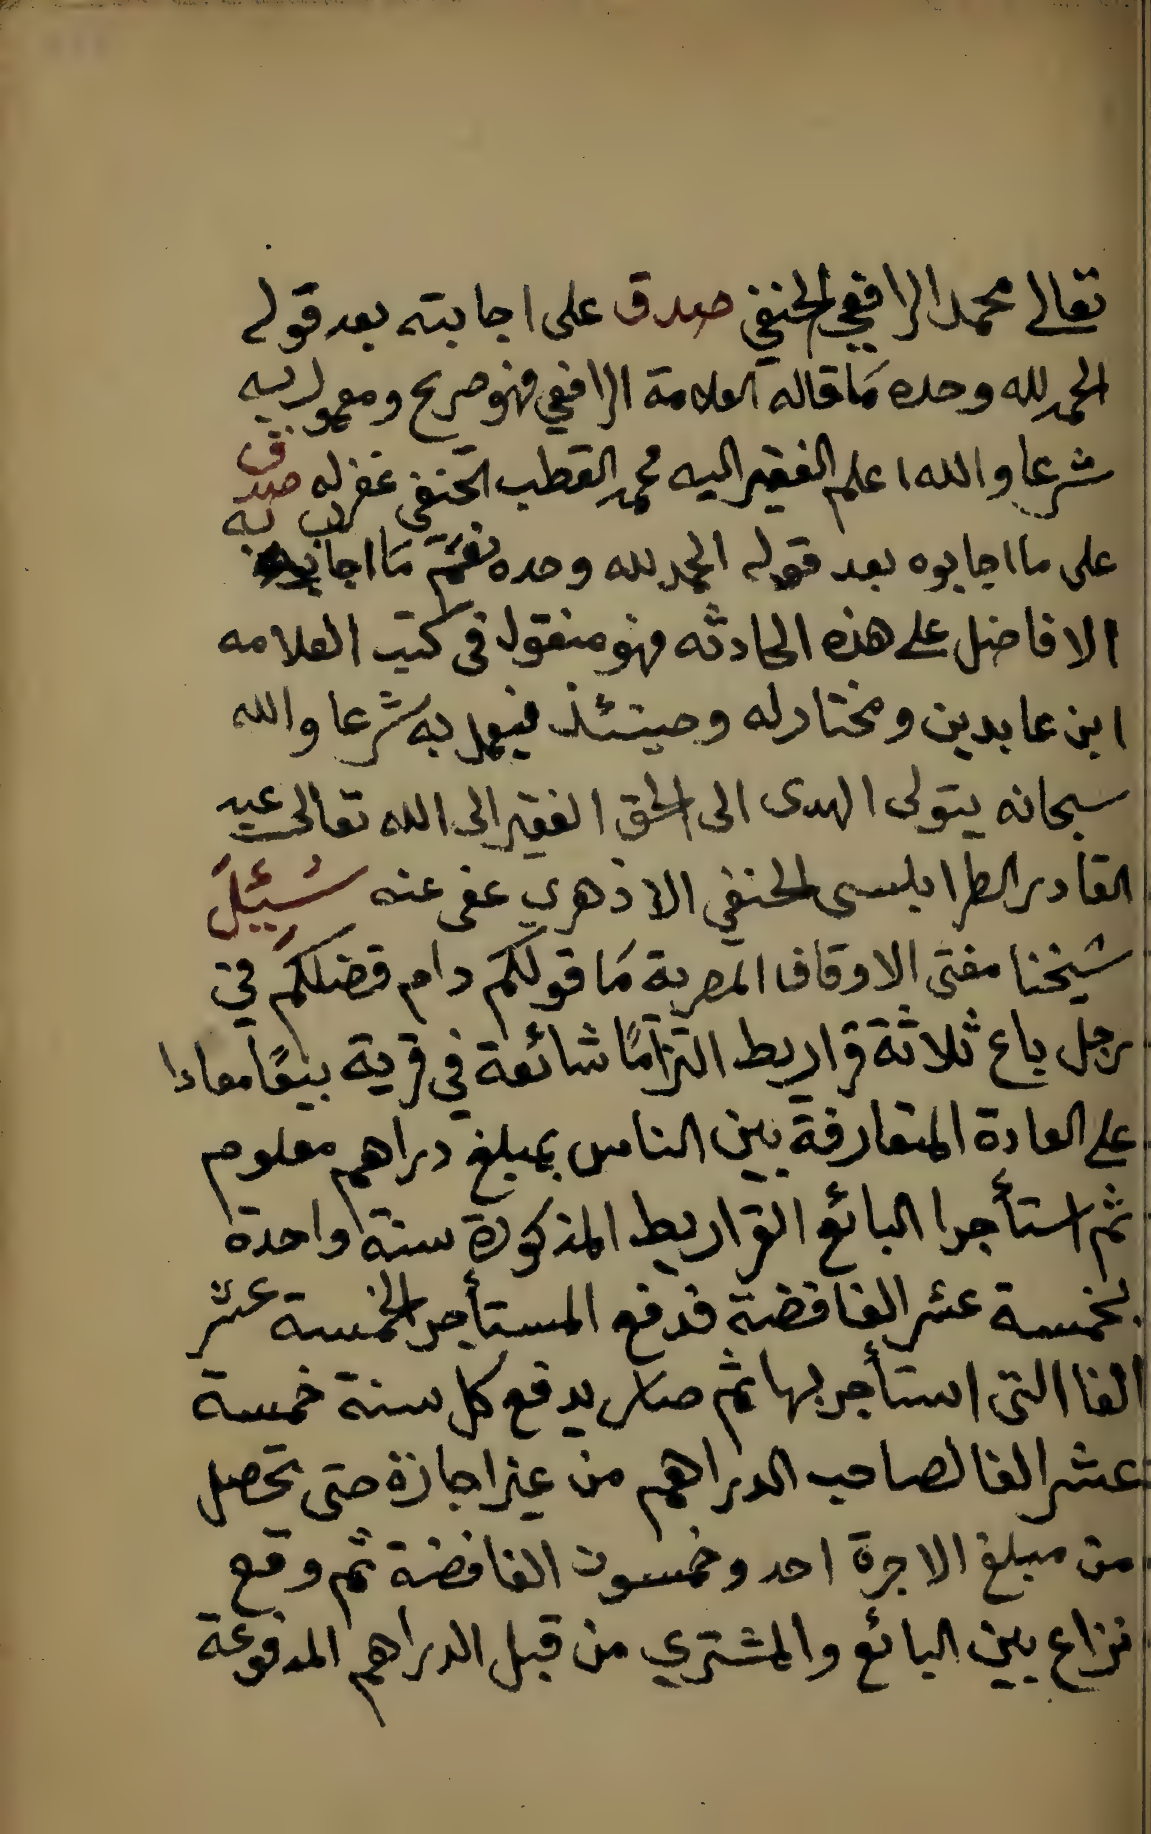 تعالى محمد الرافعي الحنفي صدق على اجابته بعد قوله
الحمد لله وحده مَا قاله العلامة الرافعي فهو صريح ومعمول به
شرعا والله اعلم الفقير اليه محمد القطب الحنفي غفر له صدق
على ما اجابوه بعد قوله الحمد لله وحده نعَم مَا اجاب به
الافاضل على هذه الحادثه فهو منقول فى كتب العلامه
ابن عابدين ومختار له وحينئذ فيعمل به شرعا والله
سبحانه يتولى الهدى الى الحق الفقير الى الله تعالى عبد
القادر الطرابلسى الحنفي الازهري عفى عنه سُئِلَ
شيخنا مفتى الاوقاف المصرية مَا قولكم دام فضلكم في
رجل باع ثلاثة قراريط التزامًا شائعة في قرية بيعًا معادا
على العادة المتعارفة بين الناس بمبلغ دراهم معلوم
ثم استأجرا البائع القراريط المذكورة سنة واحدة
بخمسة عشر الفا فضة فدفع المستأجر الخمسة عشر
الفا التى استأجر بها ثم صار يدفع كل سنة خمسة
عشر الفا لصاحب الدراهم من غير اجازة حتى تحصل
من مبلغ الاجرة احد وخمسون الفا فضة ثم وقع
نزاع بين البائع والمشتري من قبل الدراهم المدفوعة